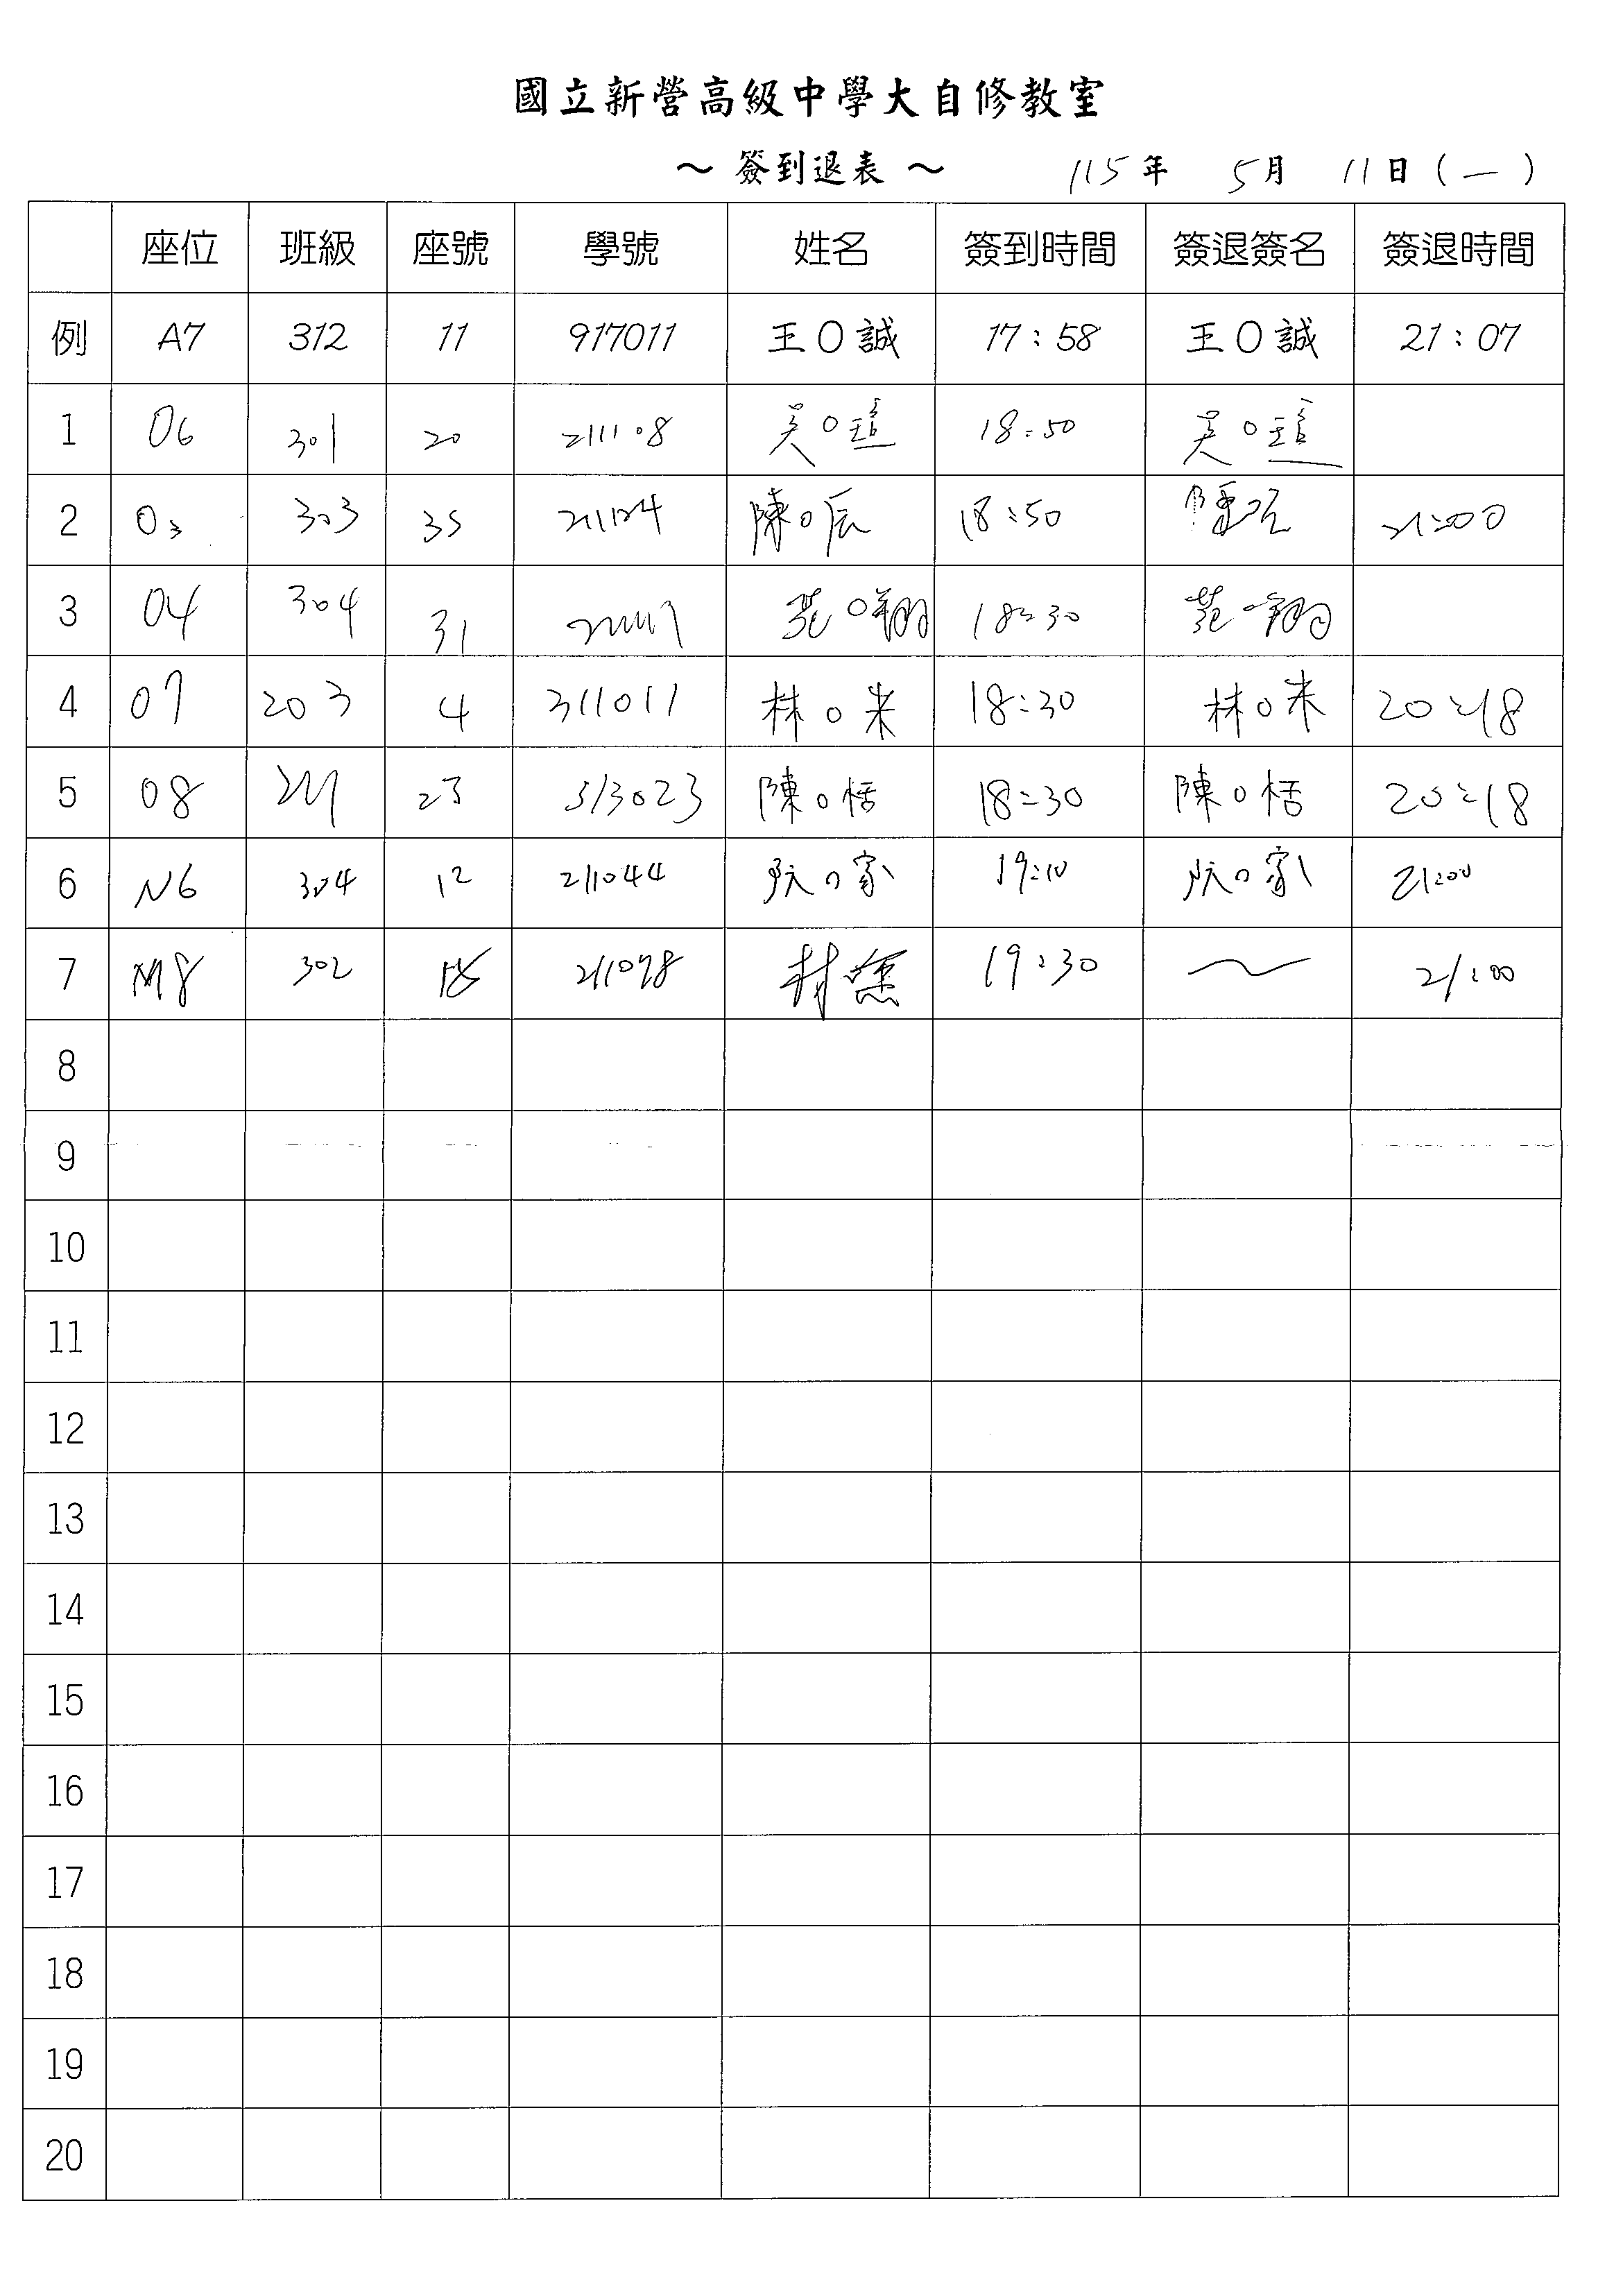 國立新營高級中學大自修教室
～ 簽到退表 ～ 115年 5月 11日(一)
座位 班級 座號 學號 姓名 簽到時間 簽退簽名 簽退時間
例 A7 312 11 917011 王O誠 17:58 王O誠 21:07
1 06 301 20 211108 吳O 18:50 吳O
2 03 303 35 陳O辰 18:50 21:00
3 04 304 31 范O翔 18:30 范 翔
4 07 203 4 311011 林O米 18:30 林O米 20:18
5 08 211 23 313023 陳O恬 18:30 陳O恬 20:18
6 N6 304 12 211044 阮O家 19:10 阮O家 21:00
7 M8 302 18 211098 林 19:30 21:00
8
9
10
11
12
13
14
15
16
17
18
19
20